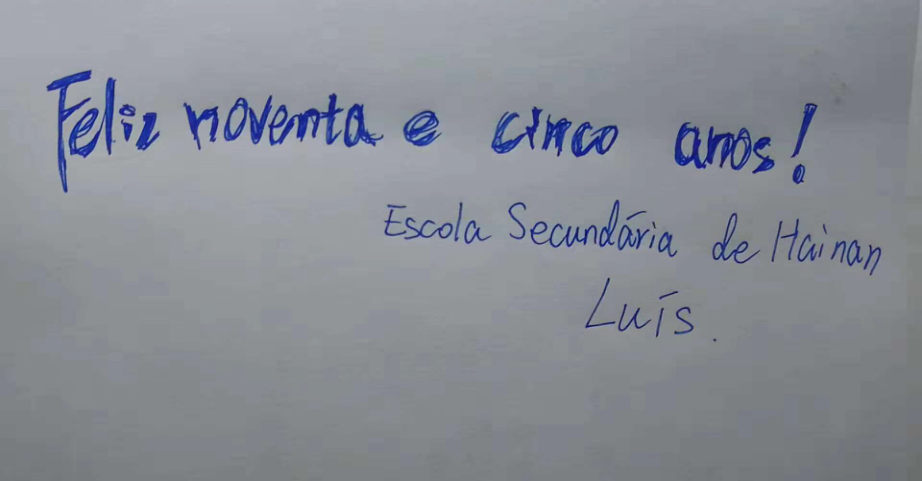 Feliz noventa e cinco anos!
Escola Secundária de Hainan
Luís.